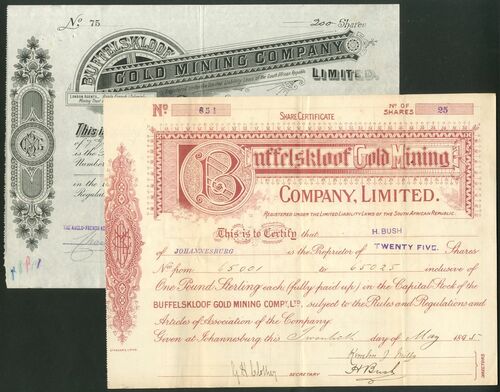 No. 75
200 Shares
BUFFELSKLOOF
GOLD MINING COMPANY
LIMITED.
of the South African Republic
LONDON AGENTS
This is
No. 651
No OF SHARES 25
SHARE CERTIFICATE
Buffelskloof Gold Mining
COMPANY, LIMITED.
REGISTERED UNDER THE LIMITED LIABILITY LAWS OF THE SOUTH AFRICAN REPUBLIC
This is to Certify that H. BUSH
of JOHANNESBURG is the Proprietor of TWENTY FIVE. Shares
No from 65001 to 65025 inclusive of
One Pound Sterling each (fully paid up) in the Capital Stock of the
BUFFELSKLOOF GOLD MINING COMPY, LTD. subject to the Rules and Regulations and
Articles of Association of the Company.
Given at Johannesburg this Twentieth day of May 1895
SECRETARY
H Bush
DIRECTORS